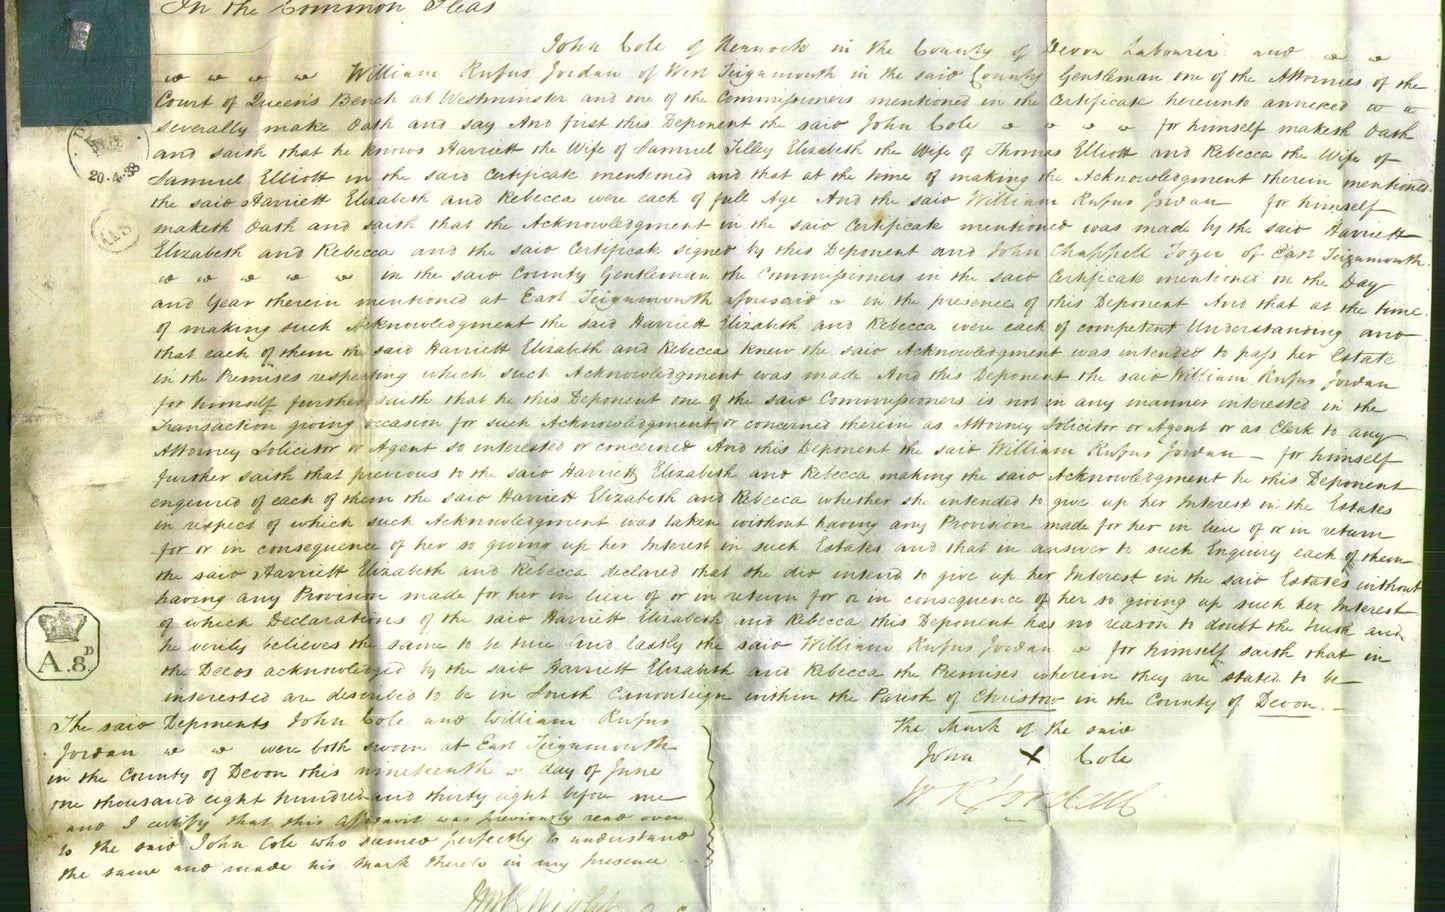 In the Common Pleas
John Cole of Hennock in the County of Devon Labourer and
William Rufus Jordan of West Teignmouth in the said County Gentleman one of the Attornies of the
Court of Queen's Bench at Westminster and one of the Commissioners mentioned in the Certificate hereunto annexed
severally make Oath and say And first this Deponent the said John Cole for himself maketh Oath
and saith that he knows Harriett the Wife of Samuel Tilley Elizabeth the Wife of Thomas Elliott and Rebecca the Wife of
Samuel Elliott in the said Certificate mentioned and that at the time of making the Acknowledgment therein mentioned
the said Harriett Elizabeth and Rebecca were each of full Age And the said William Rufus Jordan for himself
maketh Oath and saith that the Acknowledgment in the said Certificate mentioned was made by the said Harriett
Elizabeth and Rebecca and the said Certificate signed by this Deponent and John Chappell Tozer of East Teignmouth
in the said County Gentleman the Commissioners in the said Certificate mentioned on the Day
and Year therein mentioned at East Teignmouth aforesaid in the presence of this Deponent And that at the time
of making such Acknowledgment the said Harriett Elizabeth and Rebecca were each of competent Understanding and
that each of them the said Harriett Elizabeth and Rebecca knew the said Acknowledgment was intended to pass her Estate
in the Premises respecting which such Acknowledgment was made And this Deponent the said William Rufus Jordan
for himself further saith that he this Deponent one of the said Commissioners is not in any manner interested in the
Transaction giving occasion for such Acknowledgment or concerned therein as Attorney Solicitor or Agent or as Clerk to any
Attorney Solicitor or Agent so interested or concerned And this Deponent the said William Rufus Jordan for himself
further saith that previous to the said Harriett Elizabeth and Rebecca making the said Acknowledgment he this Deponent
enquired of each of them the said Harriett Elizabeth and Rebecca whether she intended to give up her Interest in the Estates
in respect of which such Acknowledgment was taken without having any Provision made for her in lieu of or in return
for or in consequence of her so giving up her Interest in such Estates and that in answer to such Enquiry each of them
the said Harriett Elizabeth and Rebecca declared that she did intend to give up her Interest in the said Estates without
having any Provision made for her in lieu of or in return for or in consequence of her so giving up such her Interest
of which Declarations of the said Harriett Elizabeth and Rebecca this Deponent has no reason to doubt the truth and
he verily believes the same to be true And Lastly the said William Rufus Jordan for himself saith that in
the Deeds acknowledged by the said Harriett Elizabeth and Rebecca the Premises wherein they are stated to be
interested are described to be in South Canonteign within the Parish of Christow in the County of Devon.
The said Deponents John Cole and William Rufus
Jordan were both sworn at East Teignmouth
in the County of Devon this nineteenth day of June
one thousand eight hundred and thirty eight before me
and I certify that this Affidavit was previously read over
to the said John Cole who seemed perfectly to understand
the same and made his Mark thereto in my presence
The Mark of the said
John X Cole
W R Jordan
20.4.38
A.8.D